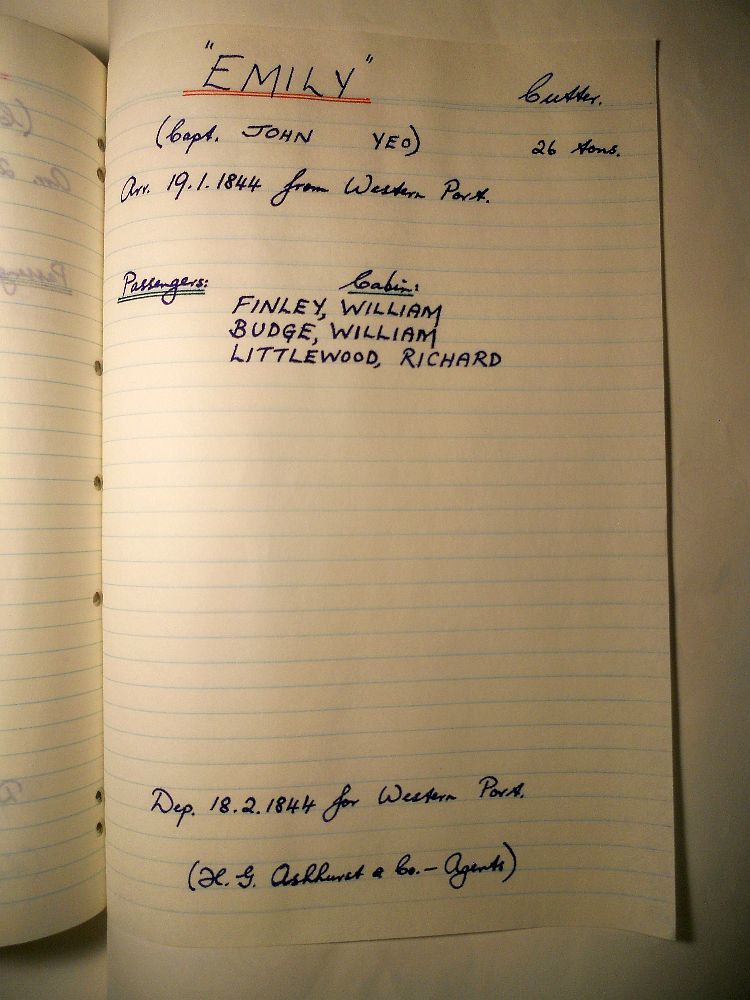 "EMILY"
Cutter.
(Capt. JOHN YEO)
26 tons.
Arr. 19.1.1844 from Western Port.
Passengers: Cabin:
FINLEY, WILLIAM
BUDGE, WILLIAM
LITTLEWOOD, RICHARD
Dep. 18.2.1844 for Western Port.
(H. G. Ashhurst & Co. – Agents)